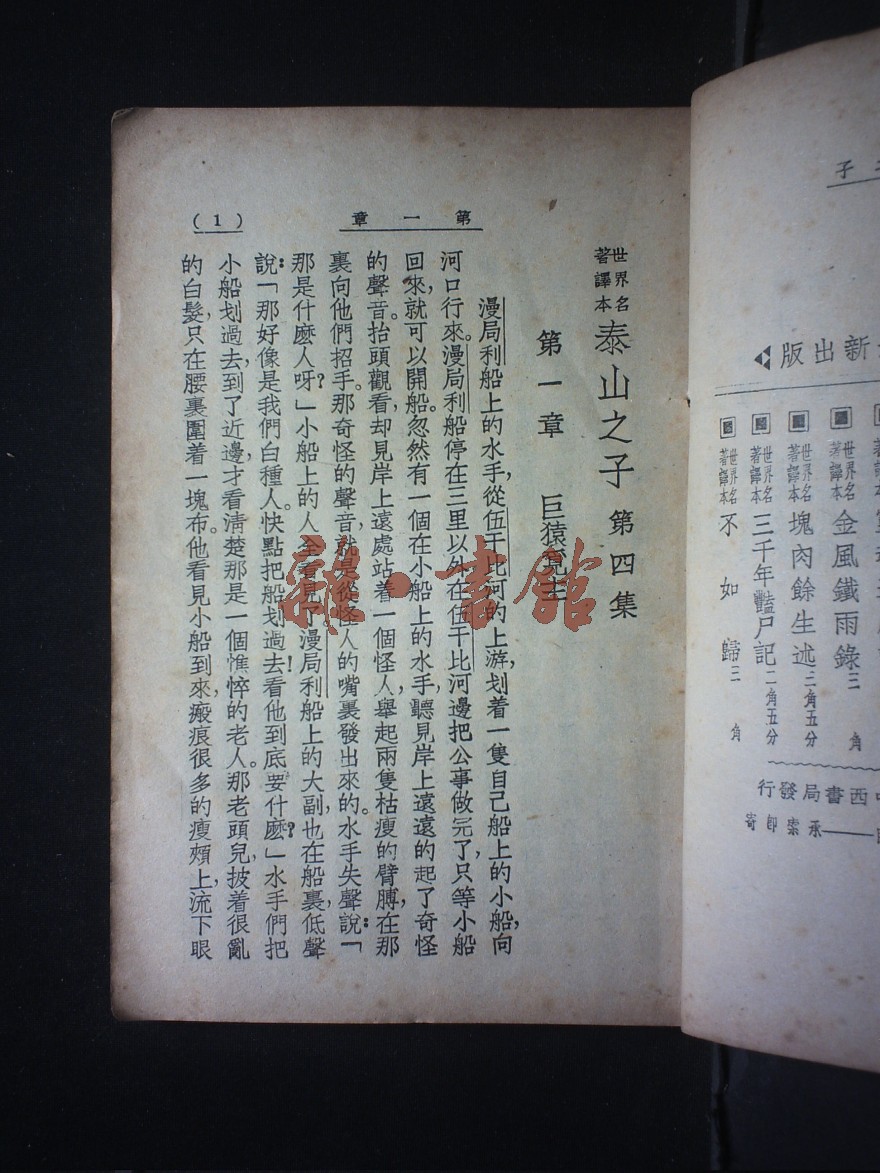 第一章
(1)
世界名著譯本 泰山之子 第四集
第一章 巨猿
漫局利船上的水手,從伍干比河的上游,划着一隻自己船上的小船,向
河口行來。漫局利船停在三里以外在伍干比河邊把公事做完了,只等小船
回來,就可以開船。忽然有一個在小船上的水手,聽見岸上遠遠的起了奇怪
的聲音。抬頭觀看,却見岸上遠處站着一個怪人,舉起兩隻枯瘦的臂膊,在那
裏向他們招手。那奇怪的聲音,就是從怪人的嘴裏發出來的。水手失聲說:「
那是什麽人呀?」小船上的人全看見了。漫局利船上的大副,也在船裏,低聲
說:「那好像是我們白種人。快點把船划過去!看他到底要什麽?」水手們把
小船划過去,到了近邊,才看清楚那是一個憔悴的老人。那老頭兒,披着很亂
的白髮,只在腰裏圍着一塊布。他看見小船到來,瘢痕很多的瘦頰上,流下眼
雜·書館
子
新出版
世界名著譯本 金風鐵雨錄 三 角
世界名著譯本 塊肉餘生述 三角五分
世界名著譯本 三千年豔尸記 二角五分
世界名著譯本 不如歸 三角
西書局發行
承索即寄